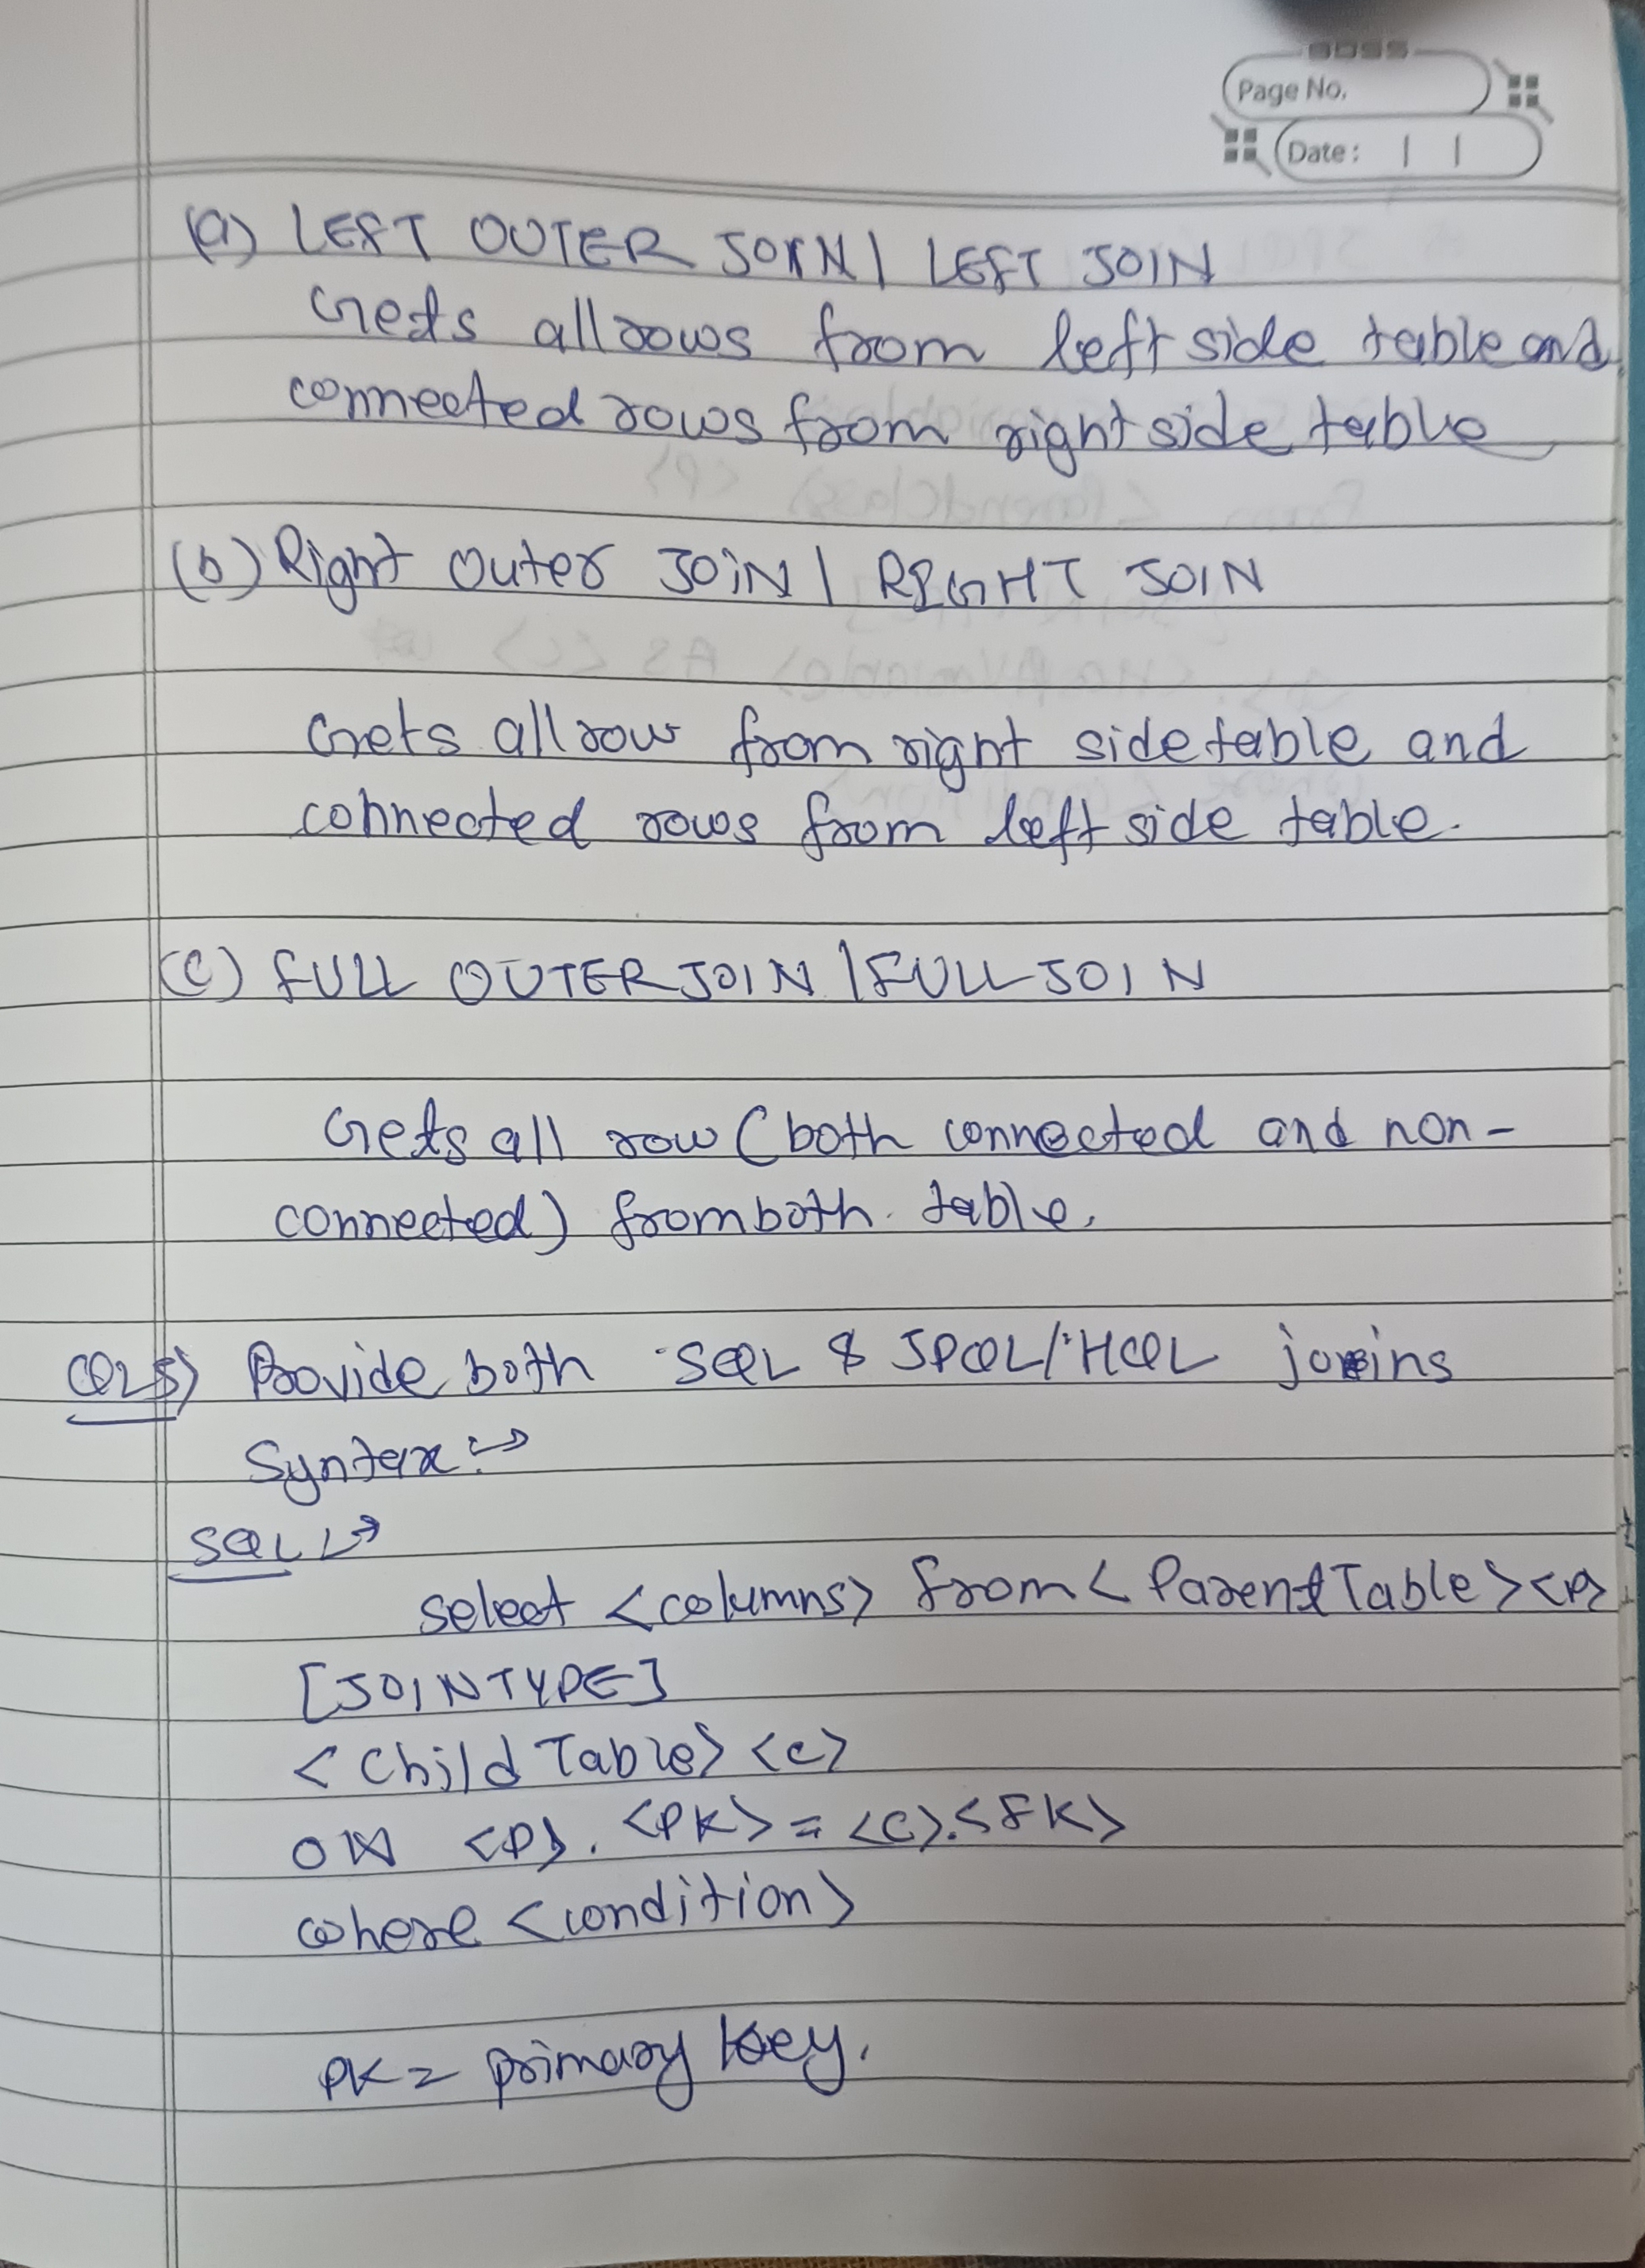 BOSS
Page No.
Date:
(a) LEFT OUTER JOIN | LEFT JOIN
Gets all rows from left side table and
connected rows from right side table
(b) Right Outer JOiN | RIGHT JOIN
Gets all row from right side table and
connected rows from left side table.
(C) FULL OUTER JOIN | FULL JOIN
Gets all row (both connected and non-
connected) from both table.
Q25) Provide both SQL & JPQL/HQL joins
Syntax :->
SQL ->
select <columns> from <ParentTable> <P>
[JOINTYPE]
<Child Table> <c>
ON <P>. <PK> = <C>.<FK>
where <condition>
PK = primary key.